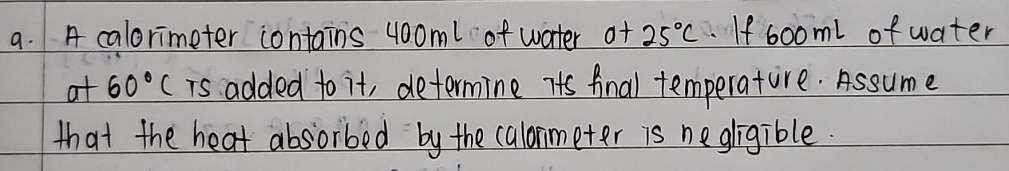 a. A calorimeter contains 400ml of water at 25°C. If 600ml of water
at 60°C is added to it, determine its final temperature. Assume
that the heat absorbed by the calorimeter is negligible.